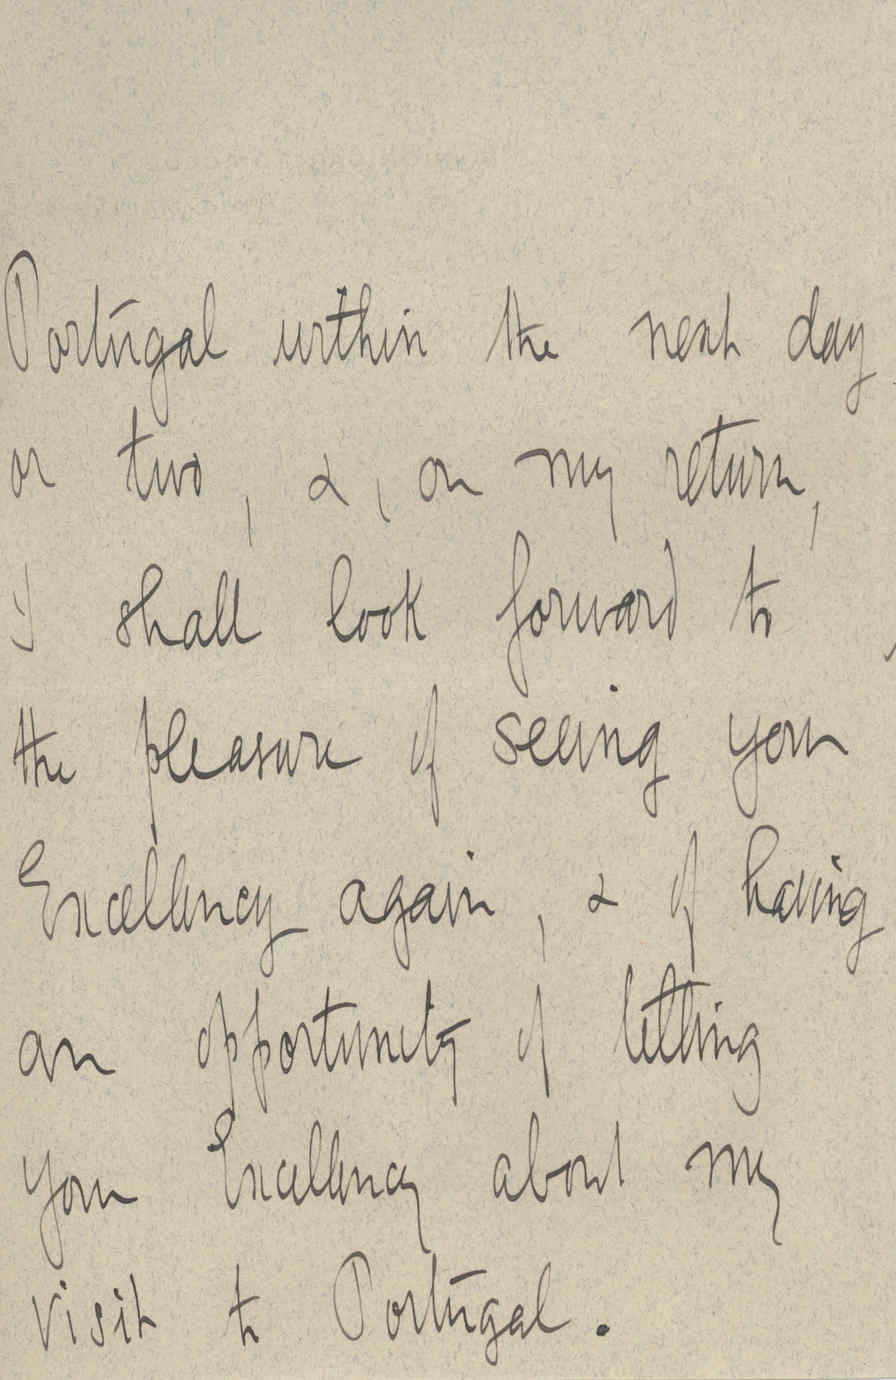 Portugal within the next day
or two, &, on my return,
I shall look forward to
the pleasure of seeing your
Excellency again, & of having
an opportunity of letting
your Excellency about my
visit to Portugal.